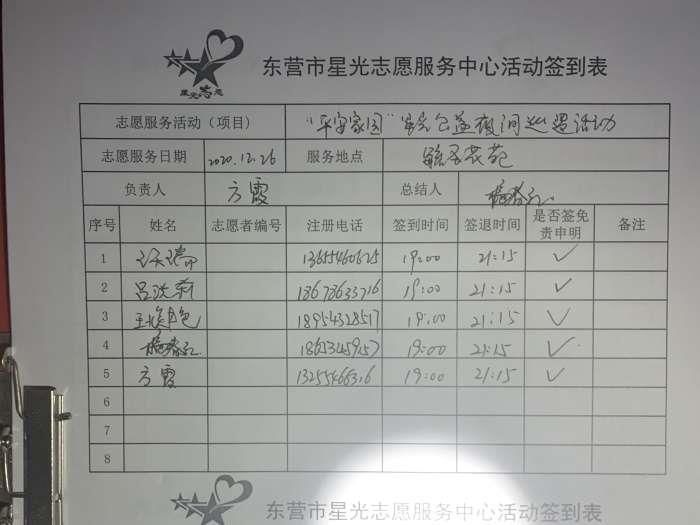 星光志愿
东营市星光志愿服务中心活动签到表
志愿服务活动（项目） "平安家园"星光公益夜间巡逻活动
志愿服务日期 2020.12.26 服务地点 花苑
负责人 方霞 总结人 杨春红
序号 姓名 志愿者编号 注册电话 签到时间 签退时间 是否签免责申明 备注
1 13655460625 19:00 21:15 ✓
2 吕洪新 18678633716 19:00 21:15 ✓
3 18954328517 19:00 21:15 ✓
4 杨春红 18653459157 19:00 21:15 ✓
5 方霞 13255466316 19:00 21:15 ✓
6
7
8
东营市星光志愿服务中心活动签到表